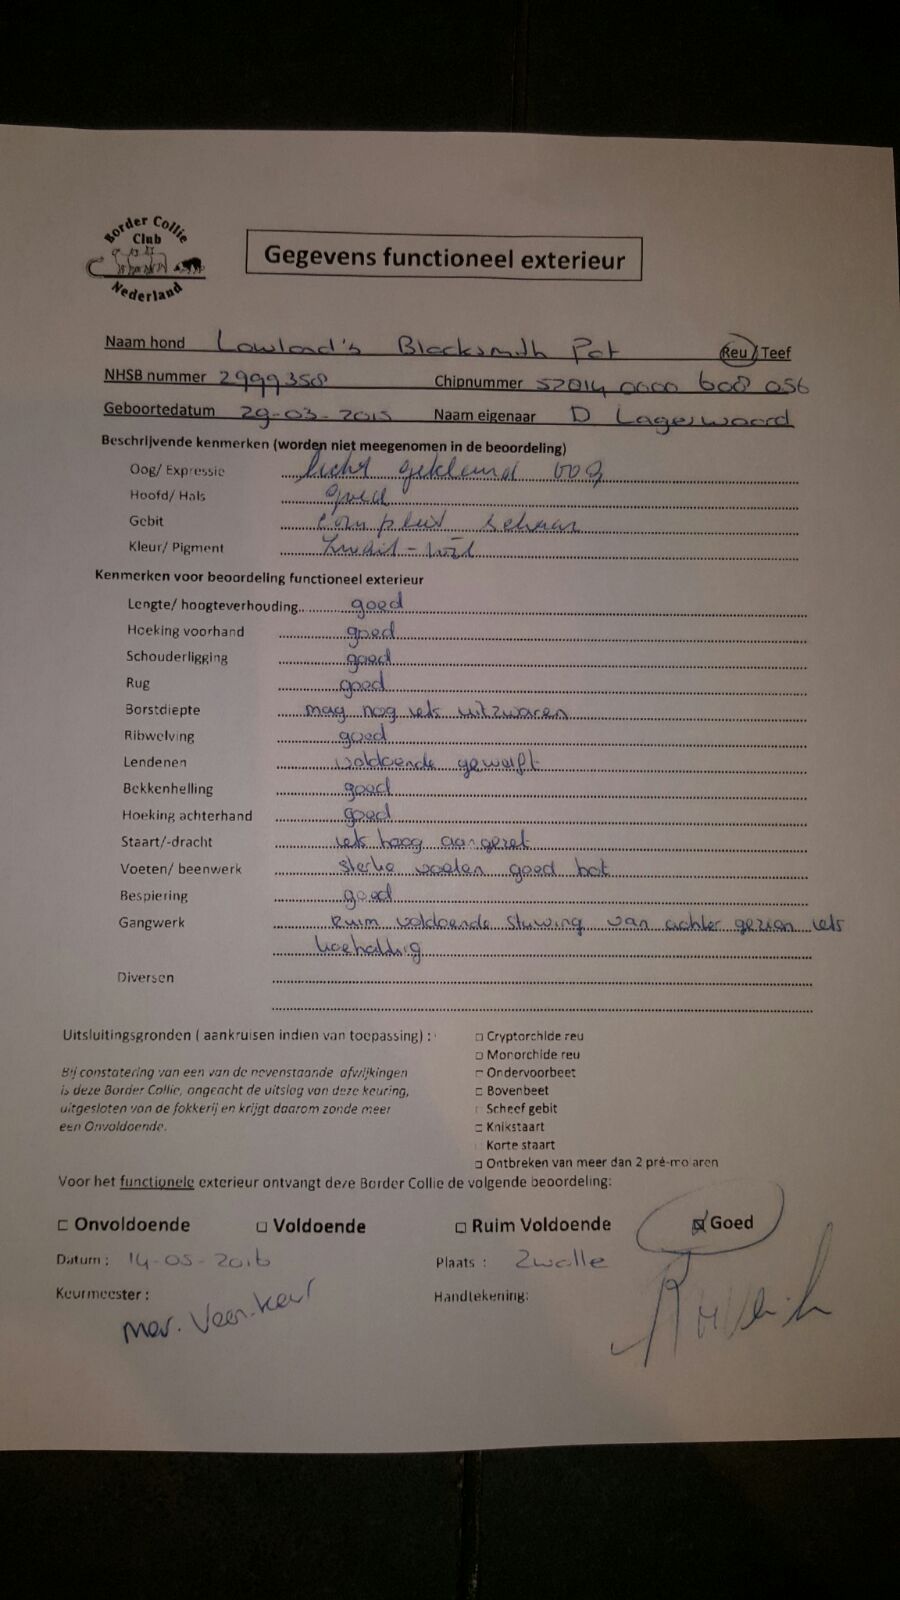 Border Collie
Club
Nederland
Gegevens functioneel exterieur
Naam hond Lowland's Blacksmith Pat Reu / Teef
NHSB nummer 2999358 Chipnummer 52814 0000 608 056
Geboortedatum 29-03-2015 Naam eigenaar D Lagerwaard
Beschrijvende kenmerken (worden niet meegenomen in de beoordeling)
Oog/ Expressie licht gekleurd oog
Hoofd/ Hals goed
Gebit compleet schaar
Kleur/ Pigment zwart-wit
Kenmerken voor beoordeling functioneel exterieur
Lengte/ hoogteverhouding.. goed
Hoeking voorhand goed
Schouderligging goed
Rug goed
Borstdiepte mag nog iets uitzwaren
Ribwelving goed
Lendenen voldoende gewelft
Bekkenhelling goed
Hoeking achterhand goed
Staart/-dracht iets hoog aangezet
Voeten/ beenwerk sterke voeten goed bot
Bespiering goed
Gangwerk Ruim voldoende stuwing van achter gezien iets
koehakkig
Diversen
Uitsluitingsgronden ( aankruisen indien van toepassing) :
□ Cryptorchide reu
□ Monorchide reu
□ Ondervoorbeet
□ Bovenbeet
□ Scheef gebit
□ Knikstaart
□ Korte staart
□ Ontbreken van meer dan 2 pré-molaren
Bij constatering van een van de nevenstaande afwijkingen
is deze Border Collie, ongeacht de uitslag van deze keuring,
uitgesloten van de fokkerij en krijgt daarom zonde meer
een Onvoldoende.
Voor het functionele exterieur ontvangt deze Border Collie de volgende beoordeling:
□ Onvoldoende □ Voldoende □ Ruim Voldoende ☒ Goed
Datum : 14-05-2016 Plaats : Zwolle
Keurmeester : Handtekening:
mev.